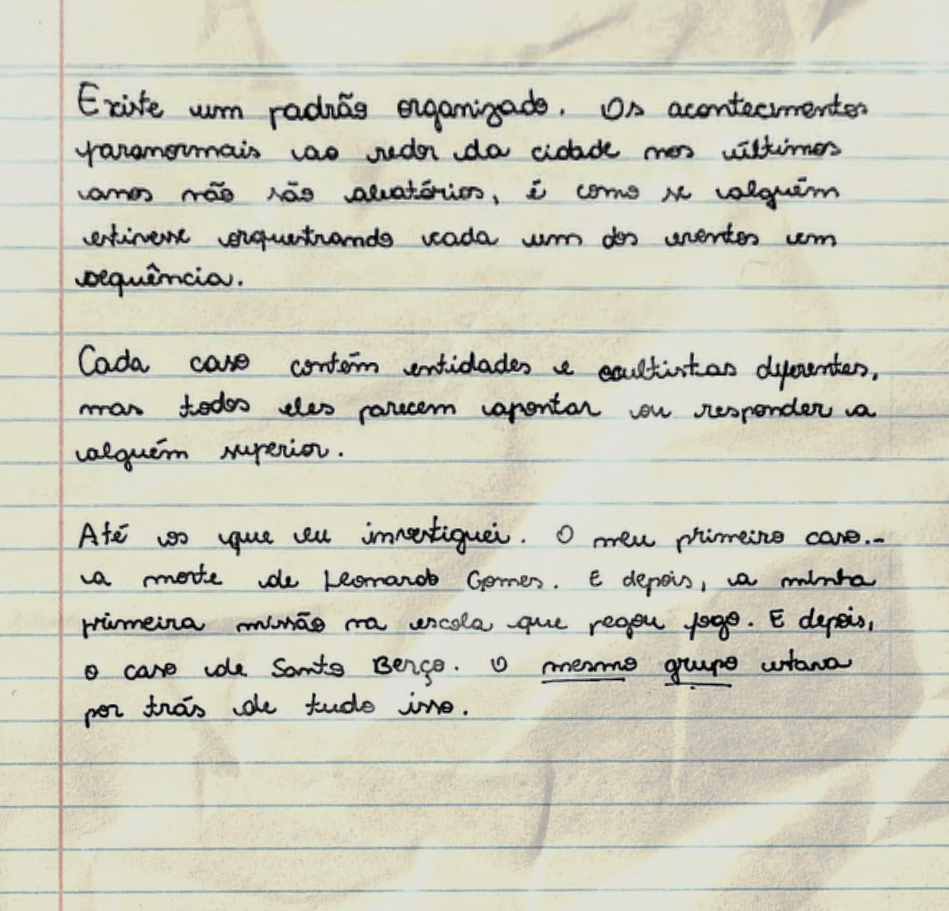 Existe um padrão organizado. Os acontecimentos
paranormais ao redor da cidade nos últimos
anos não são aleatórios, é como se alguém
estivesse orquestrando cada um dos eventos em
sequência.
Cada caso contém entidades e ocultistas diferentes,
mas todos eles parecem apontar ou responder a
alguém superior.
Até os que eu investiguei. O meu primeiro caso..
a morte de Leonardo Gomes. E depois, a minha
primeira missão na escola que pegou fogo. E depois,
o caso de Santo Berço. O mesmo grupo estava
por trás de tudo isso.